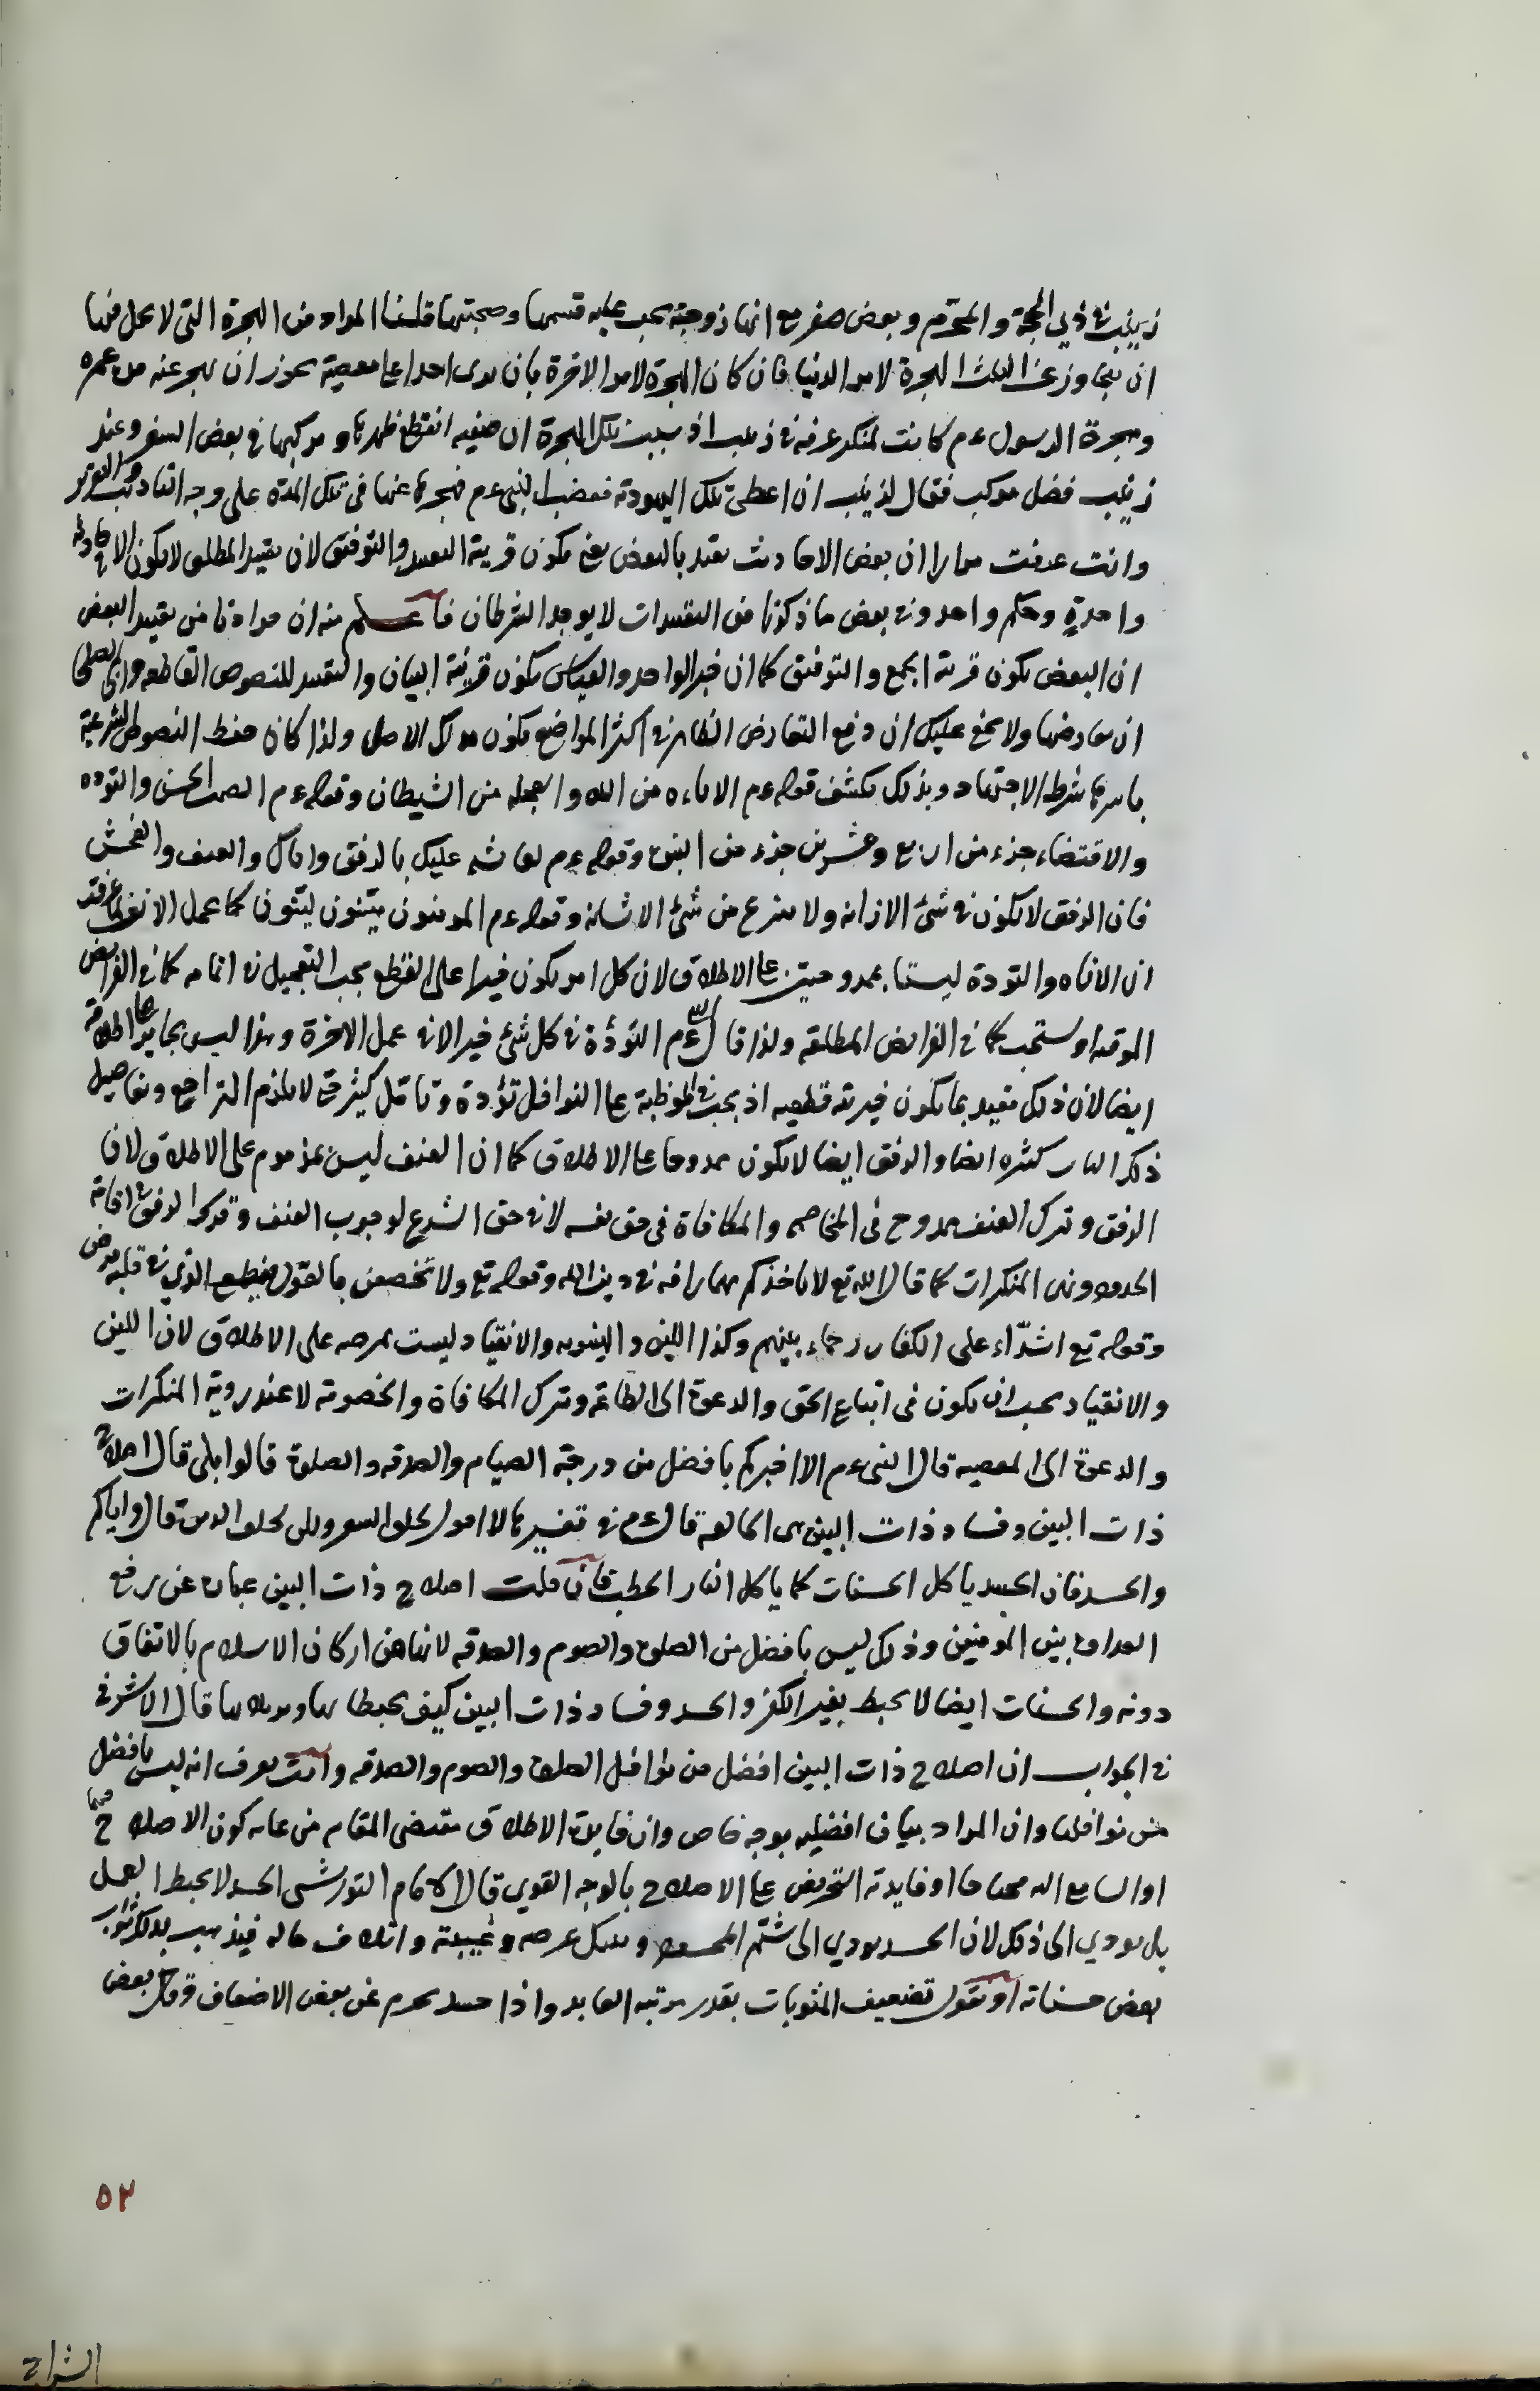 زينب في ذي الحجة والمحرم وبعض صفر مع انها زوجته يجب عليه قسمها وصحبتها قلنا المراد من الهجرة التي لا يحل منها
ان يتجاوز عن الثلث الهجرة لامر الدنيا فان كان الهجرة لامر الاخرة بان يرى احدا على معصية يجوز ان يهجر عنه مدة عمره
وهجرة الرسول عم كانت لمنكر عرفه في زينب اذ سبب تلك الهجرة ان صفيه انقطع ظهرها ومركبها في بعض السفر وعند
زينب فضل مركب فقال لزينب ان اعطي تلك اليهودية فغضب النبي عم فهجرها عنها في تلك المدة على وجه التاديب والتعزير
وانت عرفت مرارا ان بعض الاحاديث يقيد بالبعض يعني يكون قرينة التقييد والتوفيق لان تقييد المطلق لا يكون الا في حادثة
واحدة وحكم واحد وفي بعض ما ذكرنا من التقييدات لا يوجد الشرطان فاعلم منه ان مرادنا من تقييد البعض
ان البعض يكون قرينة الجمع والتوفيق كما ان خبر الواحد والقياس يكون قرينة البيان والتقييد للنصوص القاطعة وان لم يصلحا
ان يعارضها ولا يخفى عليك ان دفع التعارض الظاهر في اكثر المواضع يكون بذلك الاصل ولذا كان حفظ النصوص الشرعية
باسرها شرط الاجتهاد وبذلك يكشف قوله عم الاناءه من الله والعجلة من الشيطان وقوله عم الصمت الحسن والتوده
والاقتصاد جزء من اربع وعشرين جزء من النبوة وقوله عم لعائشه عليك بالرفق واياك والعنف والفحش
فان الرفق لا يكون في شئ الا زانه ولا ينزع من شئ الا شانه وقوله عم المومنون هينون لينون كما لجمل الانف
ان الاناه والتودة ليستا بممدوحتين على الاطلاق لان كل امر يكون خيرا على القطع يجب التعجيل في اتمامه كما في الفرائض
الموقته او يستحب كما في الفرايض المطلقه ولذا قال عم التؤدة في كل شئ خير الا في عمل الاخرة وهذا ليس بجار على اطلاقه
ايضا لان ذلك مقيد بما يكون خيريته قطعيه اذ يجب في المواظبة على النوافل تؤدة وتامل كثير حتى لا يلزم التراجع وتفاصيل
ذكر كثيره ايضا والرفق ايضا لا يكون ممدوحا على الاطلاق كما ان العنف ليس بمذموم على الاطلاق لان
الرفق وترك العنف ممدوح في المخاصمه والمكافاة في حق نفسه لا في حق الشرع لوجوب العنف وترك الرفق في اقامة
الحدود ونهى المنكرات كما قال الله تع لا ياخذكم بهما رافه في دين الله وقوله تع ولا تخضعن بالقول فيطمع الذي في قلبه مرض
وقوله تع اشدّاء على الكفار رحماء بينهم وكذا اللين والهينويه والانقياد ليست بمرضيه على الاطلاق لان اللين
والانقياد يجب ان يكون في اتباع الحق والدعوة الى الطاعة وترك المكافاة والخصومة لا عند روية المنكرات
والدعوة الى المعصيه قال النبي عم الا اخبركم بافضل من درجة الصيام والصدقه والصلوة قالوا بلى قال اصلاح
ذات البين وفساد ذات البين هى الحالقه قال عم في تفسيرها لا اقول تحلق الشعر ولكن تحلق الدين قال واياكم
والحسد فان الحسد ياكل الحسنات كما ياكل النار الحطب فان قلت اصلاح ذات البين عبارة عن رفع
العداوة بين المومنين وذلك ليس بافضل من الصلوة والصوم والصدقه لانها من اركان الاسلام بالاتفاق
دونه والحسنات ايضا لا يحبط بغير الكفر والحسد وفساد ذات البين كيف يحبطانها قال الاشرف
في الجواب ان اصلاح ذات البين افضل من نوافل الصلوة والصوم والصدقه وانت تعرف انه ليس بافضل
من نوافلها وان المراد بيان افضليه بوجه خاص وان فايدة الاطلاق مقتضى المقام من كون الاصلاح مهما
او السامع اليه محتاجا او فايدته التحريض على الاصلاح بالوجه القوي قال الامام التوربشتى الحسد لا يحبط العمل
بل يودي الى ذلك لان الحسد يودي الى شتم المحسود وهتك عرضه وغيبته واتلاف ماله فيذهب بذلك ثواب
بعض حسناته او نقول تضعيف المثوبات بقدر مرتبه العابد واذا حسد يحرم عن بعض الاضعاف وقال بعض
٥٢
الشراح